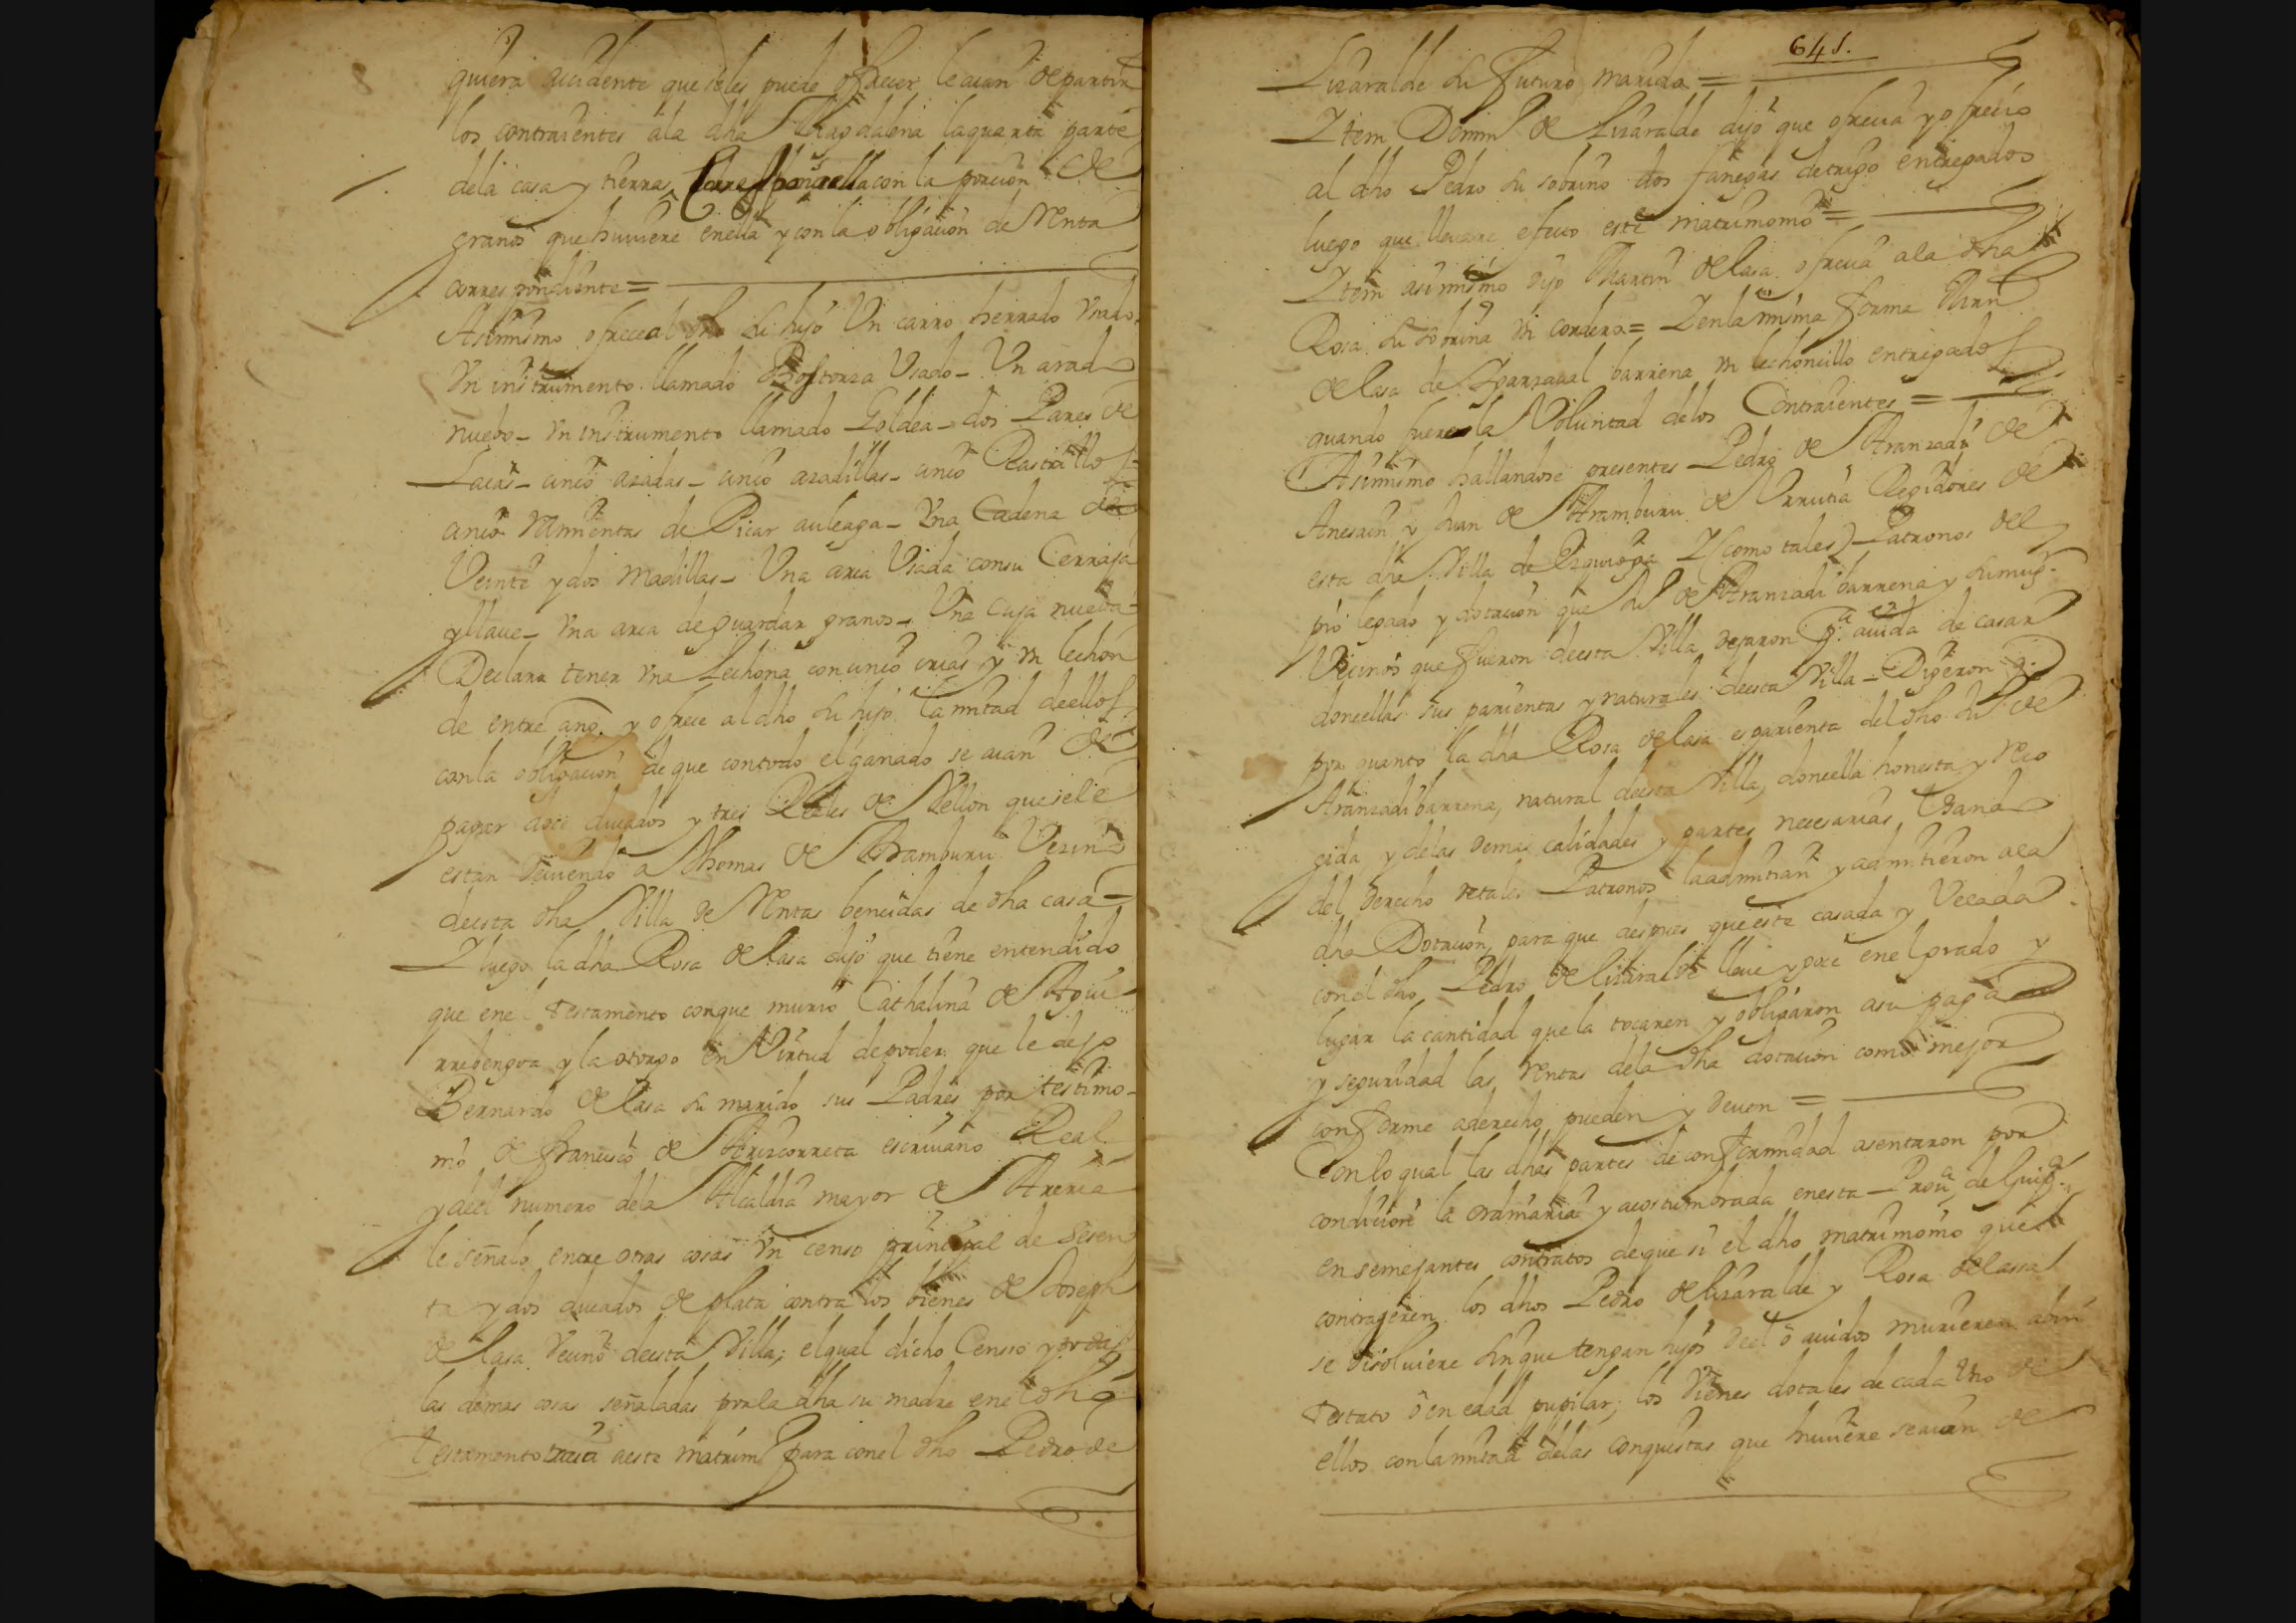 quiera accidente que seles puede ofrecer le aian de partir
los contraientes ala dha Magdalena la quarta parte
dela casa y tierras con la porcion de
granos que huuiere enella y con la obligacion de renta
correspondiente =
Asimismo ofrece al dho su hijo Un carro herrado Usado
Un instrumento llamado Bostorza Usado - Un arado
nuebo - Un instrumento llamado Goldea - dos Pares de
Laias - cinco azadas - cinco azadillas - cinco Rastrillos
cinco rramientas de Picar auleaga - Una Cadena de
Veinte y dos Madillas - Una arca Usada consu Cerraja
y llaue - Una arca de guardar granos - Una Cuja nueba -
Declara tener Una Lechona con cinco crias y Un lechon
de entre año y ofrece al dho su hijo la mitad de ellos
con la obligacion de que contodo el ganado se aian de
pagar doce ducados y tres Reales de Vellon que se le
estan deuiendo a Thomas de Aramburu Vezino
deesta dha Villa de rentas bencidas de dha casa =
Y luego la dha Rosa de lasa dijo que tiene entendido
que enel testamento conque murio Cathalina de Aguir
rrebengoa y la otorgo en Virtud de poder que le dejo
Bernardo de lasa su marido sus Padres por testimo-
nio de francisco de Arizcorreta escriuano Real
y deel numero dela Alcaldia mayor de Areria
le señalo entre otras cosas Un censo principal de sesen
ta y dos ducados de plata contra los bienes de Joseph
de lasa Vecino deesta Villa; el qual dicho Censo y todas
las demas cosas señaladas por la dha su madre enel dho
testamento traia aeste matrim.º para conel dho Pedro de
641.
Lizaralde su futuro marido =
Ytem Domin.º de Lizaralde dijo que ofrecia y ofrecio
al dho Pedro su sobrino dos fanegas de trigo entregados
luego que lleuare efecto este matrimonio =
Ytem asimismo dijo Martin de lasa ofrecia ala dha
Rosa su sobrina Un cordero = Y enla misma forma Mrn
de lasa de barrena Un lechoncillo entregados
quando fuere la Voluntad delos Contraientes =
Asimismo hallandose presentes Pedro de Aranzadi de
y Juan de Aramburu de Urrutia Regidores de
esta dha Villa de Ezquioga Y (como tales) Patronos del
pio legado y dotacion que Ju.º de Aranzadi barrena y su mug.r
Vecinos que fueron deesta Villa, dejaron p.ª aiuda de casar
doncellas sus parientas y naturales deesta Villa - Digeron q.
por quanto la dha Rosa de lasa es parienta del dho Ju.º de
Aranzadi barrena, natural deesta Villa, doncella honesta y reco
gida y delas demas calidades y partes necesarias Usando
del derecho de tales Patronos la admitian y admitieron ala
dha Dotacion para que despues que este casada y Velada
conel dho Pedro de lizaralde lleue y goze enel grado y
lugar la cantidad que la tocaren y obligaron asu paga
y seguridad las rentas dela dha dotacion como mejor
conforme aderecho pueden y deuen =
Conlo qual las dhas partes de conformidad asentaron por
condicion la ordinaria y acostumbrada enesta Prou.ª de Guip.ª
en semejantes contratos de que si el dho matrimonio que
contrageren los dhos Pedro de lizaralde y Rosa de lasa
se disoluiere sin que tengan hijos deel o auidos murieren abin
testato o en edad pupilar; los Vienes dotales de cada Uno de
ellos con la mitad delas conquistas que huuiere se aian de